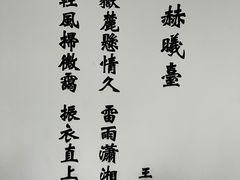 赫曦臺
王
嶽麓懸情久 雷雨瀟湘
輕風掃微靄 振衣直上